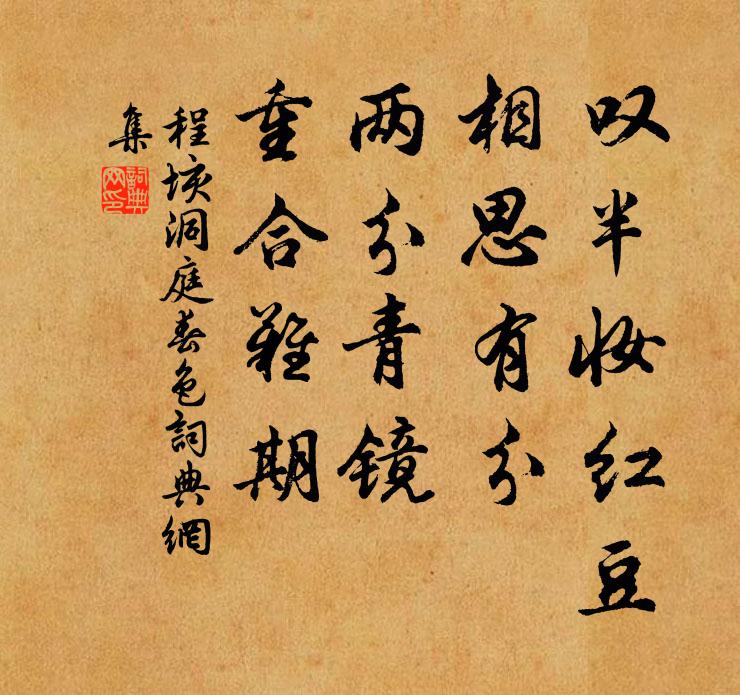 叹半妆红豆
相思有分
两分青镜
重合难期
程垓洞庭春色詞典網
集
詞典
网印